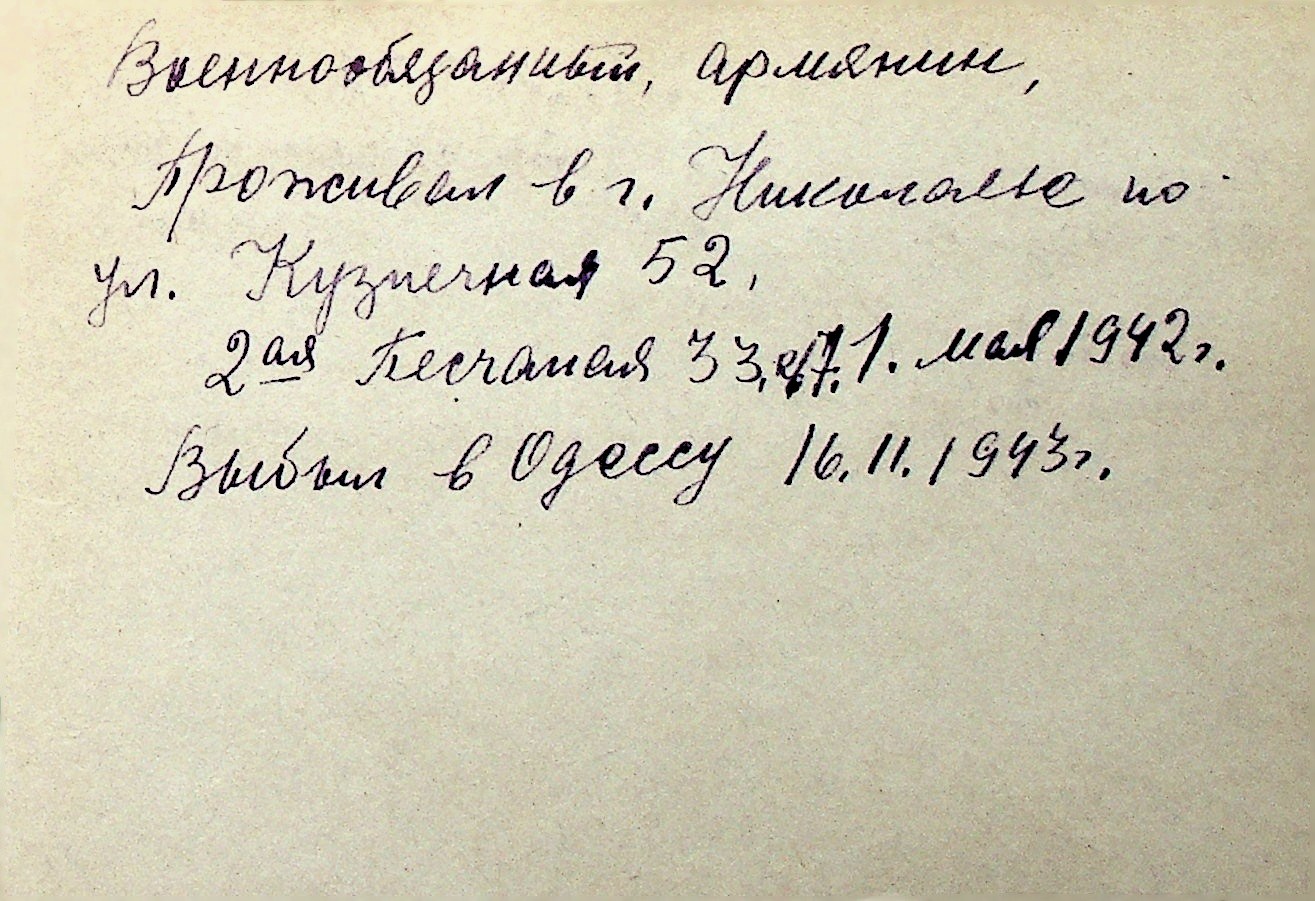 Военнообязанный, армянин,
Проживал в г. Николаеве по
ул. Кузнечная 52,
2ая Песчаная 33, 1. мая 1942г.
Выбыл в Одессу 16.11.1943г.